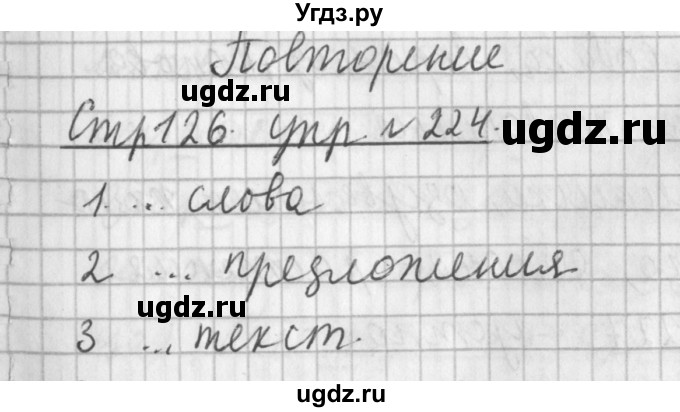 Угдз.ру
Повторение
ugdz.ru
ugdz.ru
Стр 126. упр. № 224.
1. ... слова
ugdz.ru
2 ... предложения
ugdz.ru
3 ... текст.
ugdz.ru